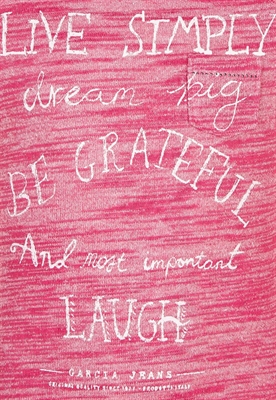 LIVE SIMPLY
dream big
BE GRATEFUL
And most important
LAUGH
GARCIA JEANS
ORIGINAL QUALITY SINCE